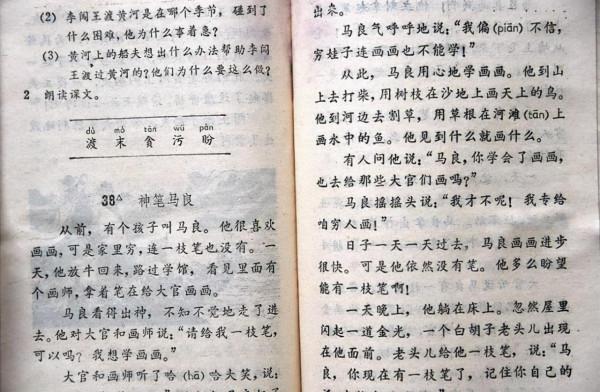 (2) 李闯王渡黄河是在哪个季节,碰到了
什么困难,他为什么事着急?
(3) 黄河上的船夫想出什么办法帮助李闯
王渡过黄河的?他们为什么要这么做?
2 朗读课文。
dù mò tān wū pàn
渡 末 贪 污 盼
38△ 神笔马良
从前,有个孩子叫马良。他很喜欢
画画,可是家里穷,连一枝笔也没有。一
天,他放牛回来,路过学馆,看见里面有
个画师,拿着笔在给大官画画。
马良看得出神,不知不觉地走了进
去。他对大官和画师说:“请给我一枝笔,
可以吗?我想学画画。”
大官和画师听了哈(hā)哈大笑,说:
出来。
马良气呼呼地说:“我偏(piān)不信,
穷娃子连画画也不能学!”
从此,马良用心地学画画。他到山
上去打柴,用树枝在沙地上画天上的鸟。
他到河边去割草,用草根在河滩(tān)上
画水中的鱼。他见到什么就画什么。
有人问他说:“马良,你学会了画画,
也去给那些大官们画吗?”
马良摇摇头说:“我才不呢!我专给
咱穷人画!”
日子一天一天过去,马良画画进步
很快。可是他依然没有笔。他多么盼望
能有一枝笔啊!
一天晚上,他躺在床上。忽然屋里
闪起一道金光,一个白胡子老头儿出现
在他面前。老头儿给他一枝笔,说:“马
良,你现在有了一枝笔了,记住你自己的